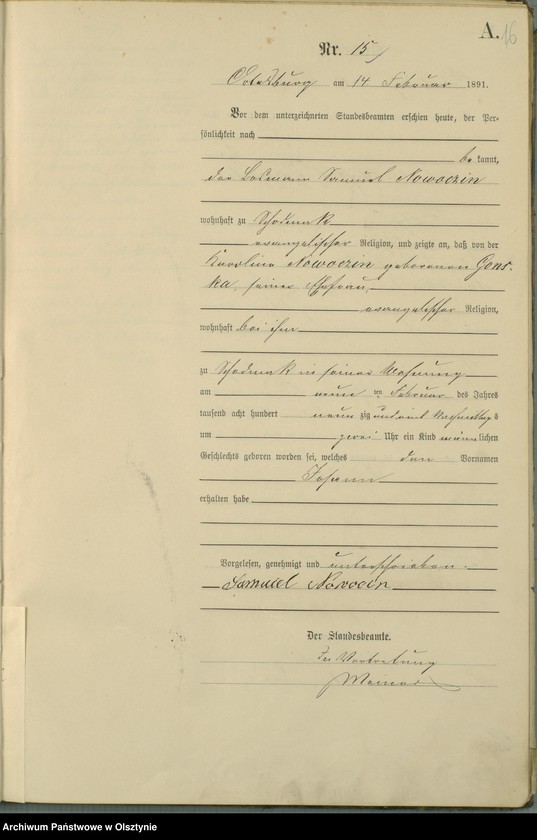 A. 16
Nr. 15
Ortelsburg am 14 Februar 1891.
Vor dem unterzeichneten Standesbeamten erschien heute, der Per-
sönlichkeit nach
be kannt,
der Losmann Samuel Nowoczin
wohnhaft zu Schodmak
evangelischer Religion, und zeigte an, daß von der
Karoline Nowoczin geborenen Gons-
ka, seiner Ehefrau,
evangelischer Religion,
wohnhaft bei ihm
zu Schodmak in seiner Wohnung
am neun ten Februar des Jahres
tausend acht hundert neun zig und eins Nachmittags
um zwei Uhr ein Kind männlichen
Geschlechts geboren worden sei, welches den Vornamen
Johann
erhalten habe
Vorgelesen, genehmigt und unterschrieben.
Samuel Nowocin
Der Standesbeamte.
In Vertretung
Archiwum Państwowe w Olsztynie